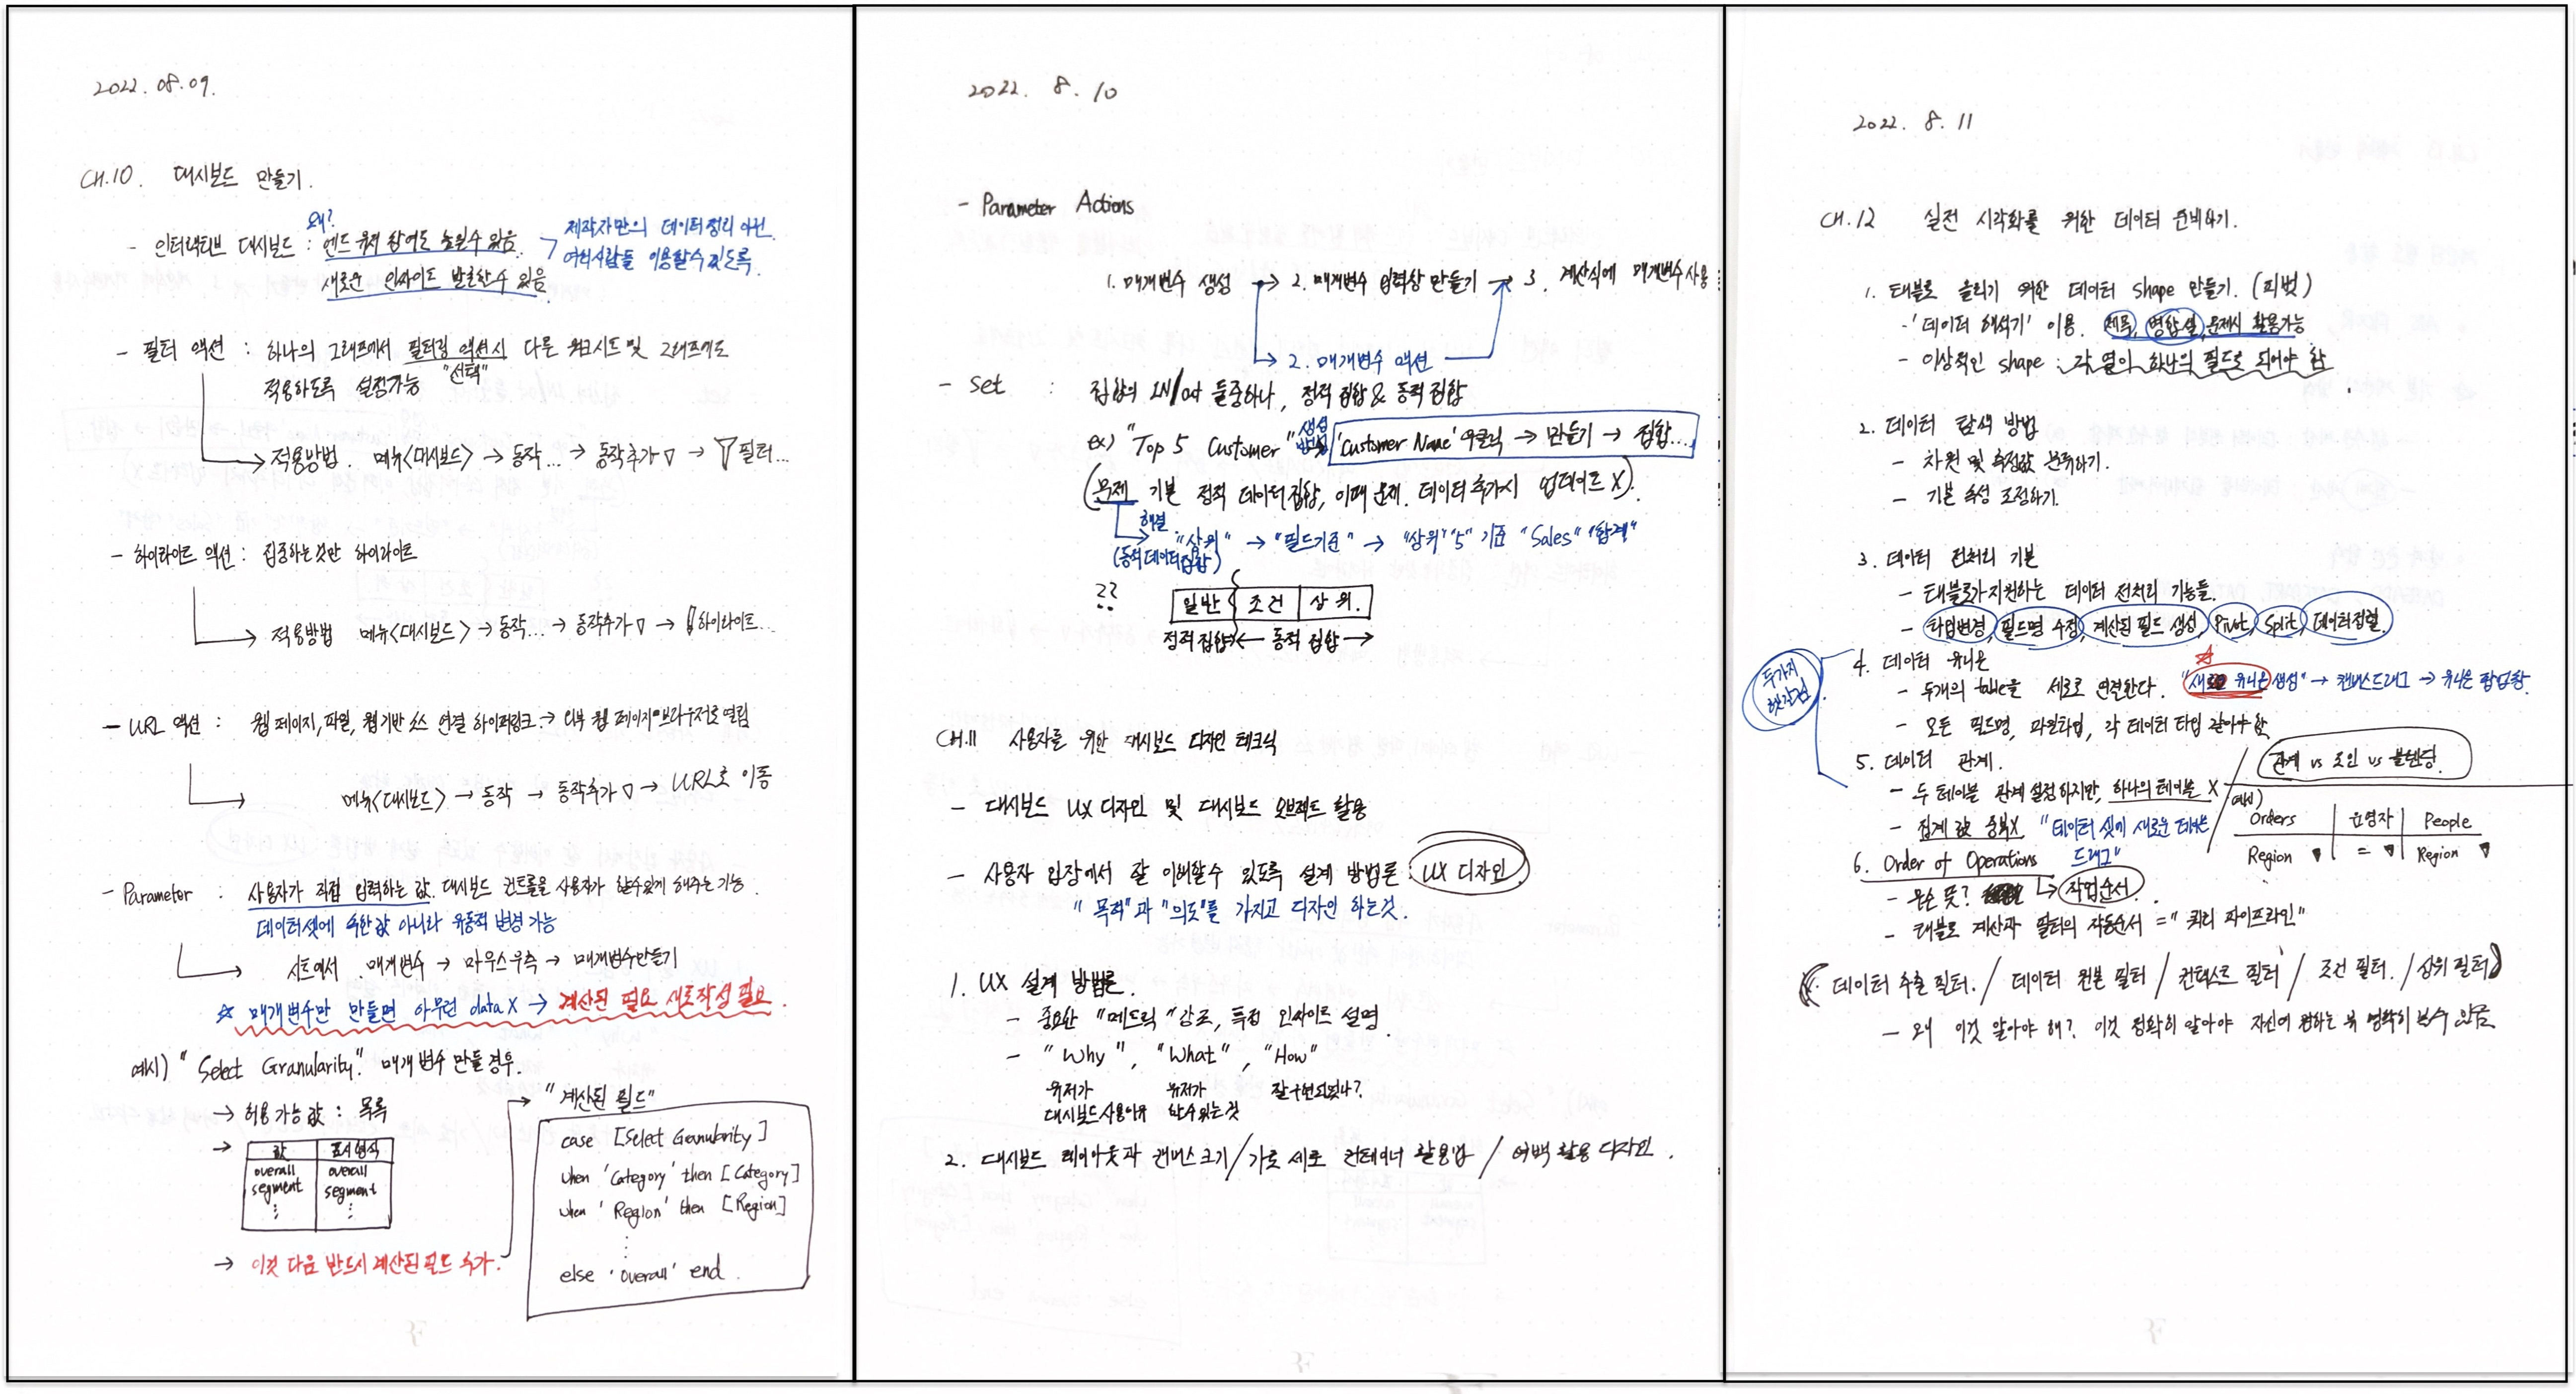 2022. 08. 09.
CH.10. 대시보드 만들기.
왜?
- 인터랙티브 대시보드 : 엔드 유저 참여도 높일수 있음.
새로운 인사이트 발견할수 있음
제작자만의 데이터 정리 아닌
여러사람들 이용할수 있도록
- 필터 액션 : 하나의 그래프에서 필터링 액션시 다른 워크시트 및 그래프에도
적용하도록 설정가능 "선택"
→ 적용방법. 메뉴<대시보드> → 동작... → 동작추가▽ → 필터...
- 하이라이트 액션 : 집중하는것만 하이라이트
→ 적용방법 메뉴<대시보드> → 동작... → 동작추가▽ → 하이라이트...
- URL 액션 : 웹 페이지, 파일, 웹 기반 소스 연결 하이퍼링크 → 외부 웹 페이지 브라우저로 열림
→ 메뉴<대시보드> → 동작 → 동작추가▽ → URL로 이동
- Parameter : 사용자가 직접 입력하는 값. 대시보드 컨트롤을 사용자가 할수있게 해주는 기능.
데이터셋에 속한 값 아니라 유동적 변경 가능
→ 시트에서 매개변수 → 마우스우측 → 매개변수만들기
☆ 매개변수만 만들면 아무런 data X → 계산된 필요 새로작성 필요.
예시) "Select Granularity" 매개 변수 만들 경우.
→ 허용 가능 값 : 목록
→ 값 표시형식
overall overall
segment segment
⋮ ⋮
→ 이것 다음 반드시 계산된 필드 추가.
"계산된 필드"
case [Select Granularity]
when 'Category' then [Category]
when 'Region' then [Region]
⋮
else 'overall' end.
2022. 8. 10
- Parameter Actions
1. 매개변수 생성 → 2. 매개변수 입력창 만들기 → 3. 계산식에 매개변수 사용
→ 2. 매개변수 액션
- Set : 집합의 IN/out 둘중하나, 정적 집합 & 동적 집합
ex) "Top 5 Customer" 생성 방법 'Customer Name' 우클릭 → 만들기 → 집합...
(문제 기본 정적 데이터집합, 이때 문제. 데이터 추가시 업데이트 X).
해결 "상위" → "필드기준" → "상위" "5" 기준 "Sales" "합계"
(동적데이터집합)
?? 일반 조건 상위.
정적 집합 ← 동적 집합 →
CH.11 사용자를 위한 대시보드 디자인 테크닉
- 대시보드 UX 디자인 및 대시보드 오브젝트 활용
- 사용자 입장에서 잘 이해할수 있도록 설계 방법론 : UX 디자인
"목적"과 "의도"를 가지고 디자인 하는것.
1. UX 설계 방법론.
- 중요한 "메트릭" 강조, 특정 인사이트 설명.
- "Why", "What", "How"
유저가 유저가 잘 구현되었나?
대시보드사용이유 할수있는것
2. 대시보드 레이아웃과 캔버스 크기 / 가로 세로 컨테이너 활용법 / 여백 활용 디자인.
2022. 8. 11
CH.12 실전 시각화를 위한 데이터 준비하기.
1. 태블로 올리기 위한 데이터 shape 만들기. (피벗)
- '데이터 해석기' 이용. 제목, 병합셀, 문제시 활용가능
- 이상적인 shape : 각 열의 하나의 필드로 되어야 함.
2. 데이터 탐색 방법
- 차원 및 측정값 분류하기.
- 기본 속성 조정하기.
3. 데이터 전처리 기본
- 태블로가 지원하는 데이터 전처리 기능들.
- 타입변경, 필드명 수정, 계산된 필드 생성, Pivot, Split, 데이터정렬.
두가지 헷갈림
4. 데이터 유니온
- 두개의 table을 세로로 연결한다. "새 유니온 생성" → 캔버스드래그 → 유니온 팝업창.
- 모든 필드명, 파일타입, 각 데이터 타입 같아야 함
5. 데이터 관계.
- 두 테이블 관계 설정하지만, 하나의 테이블 X
- 집계 값 중복X "데이터 셋에 새로운 테이블 드래그"
관계 vs 조인 vs 블렌딩.
예시)
Orders 운영자 People
Region = Region
6. Order of Operations
- 무슨 뜻? → 작업순서.
- 태블로 계산과 필터의 작동순서 = "쿼리 파이프라인"
(데이터 추출 필터. / 데이터 원본 필터 / 컨텍스트 필터 / 조건 필터. / 상위 필터)
- 왜 이것 알아야 해? 이것 정확히 알아야 자신이 원하는 뷰 명확히 볼수 있음